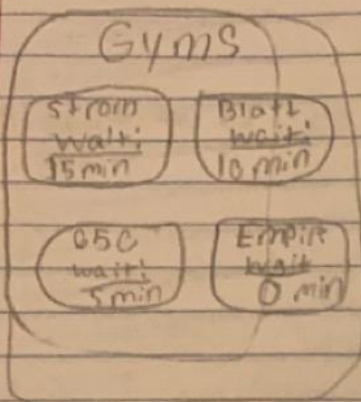 Gyms
Strom
wait:
15 min
Blatt
wait:
10 min
wait:
5 min
Empire
wait
0 min